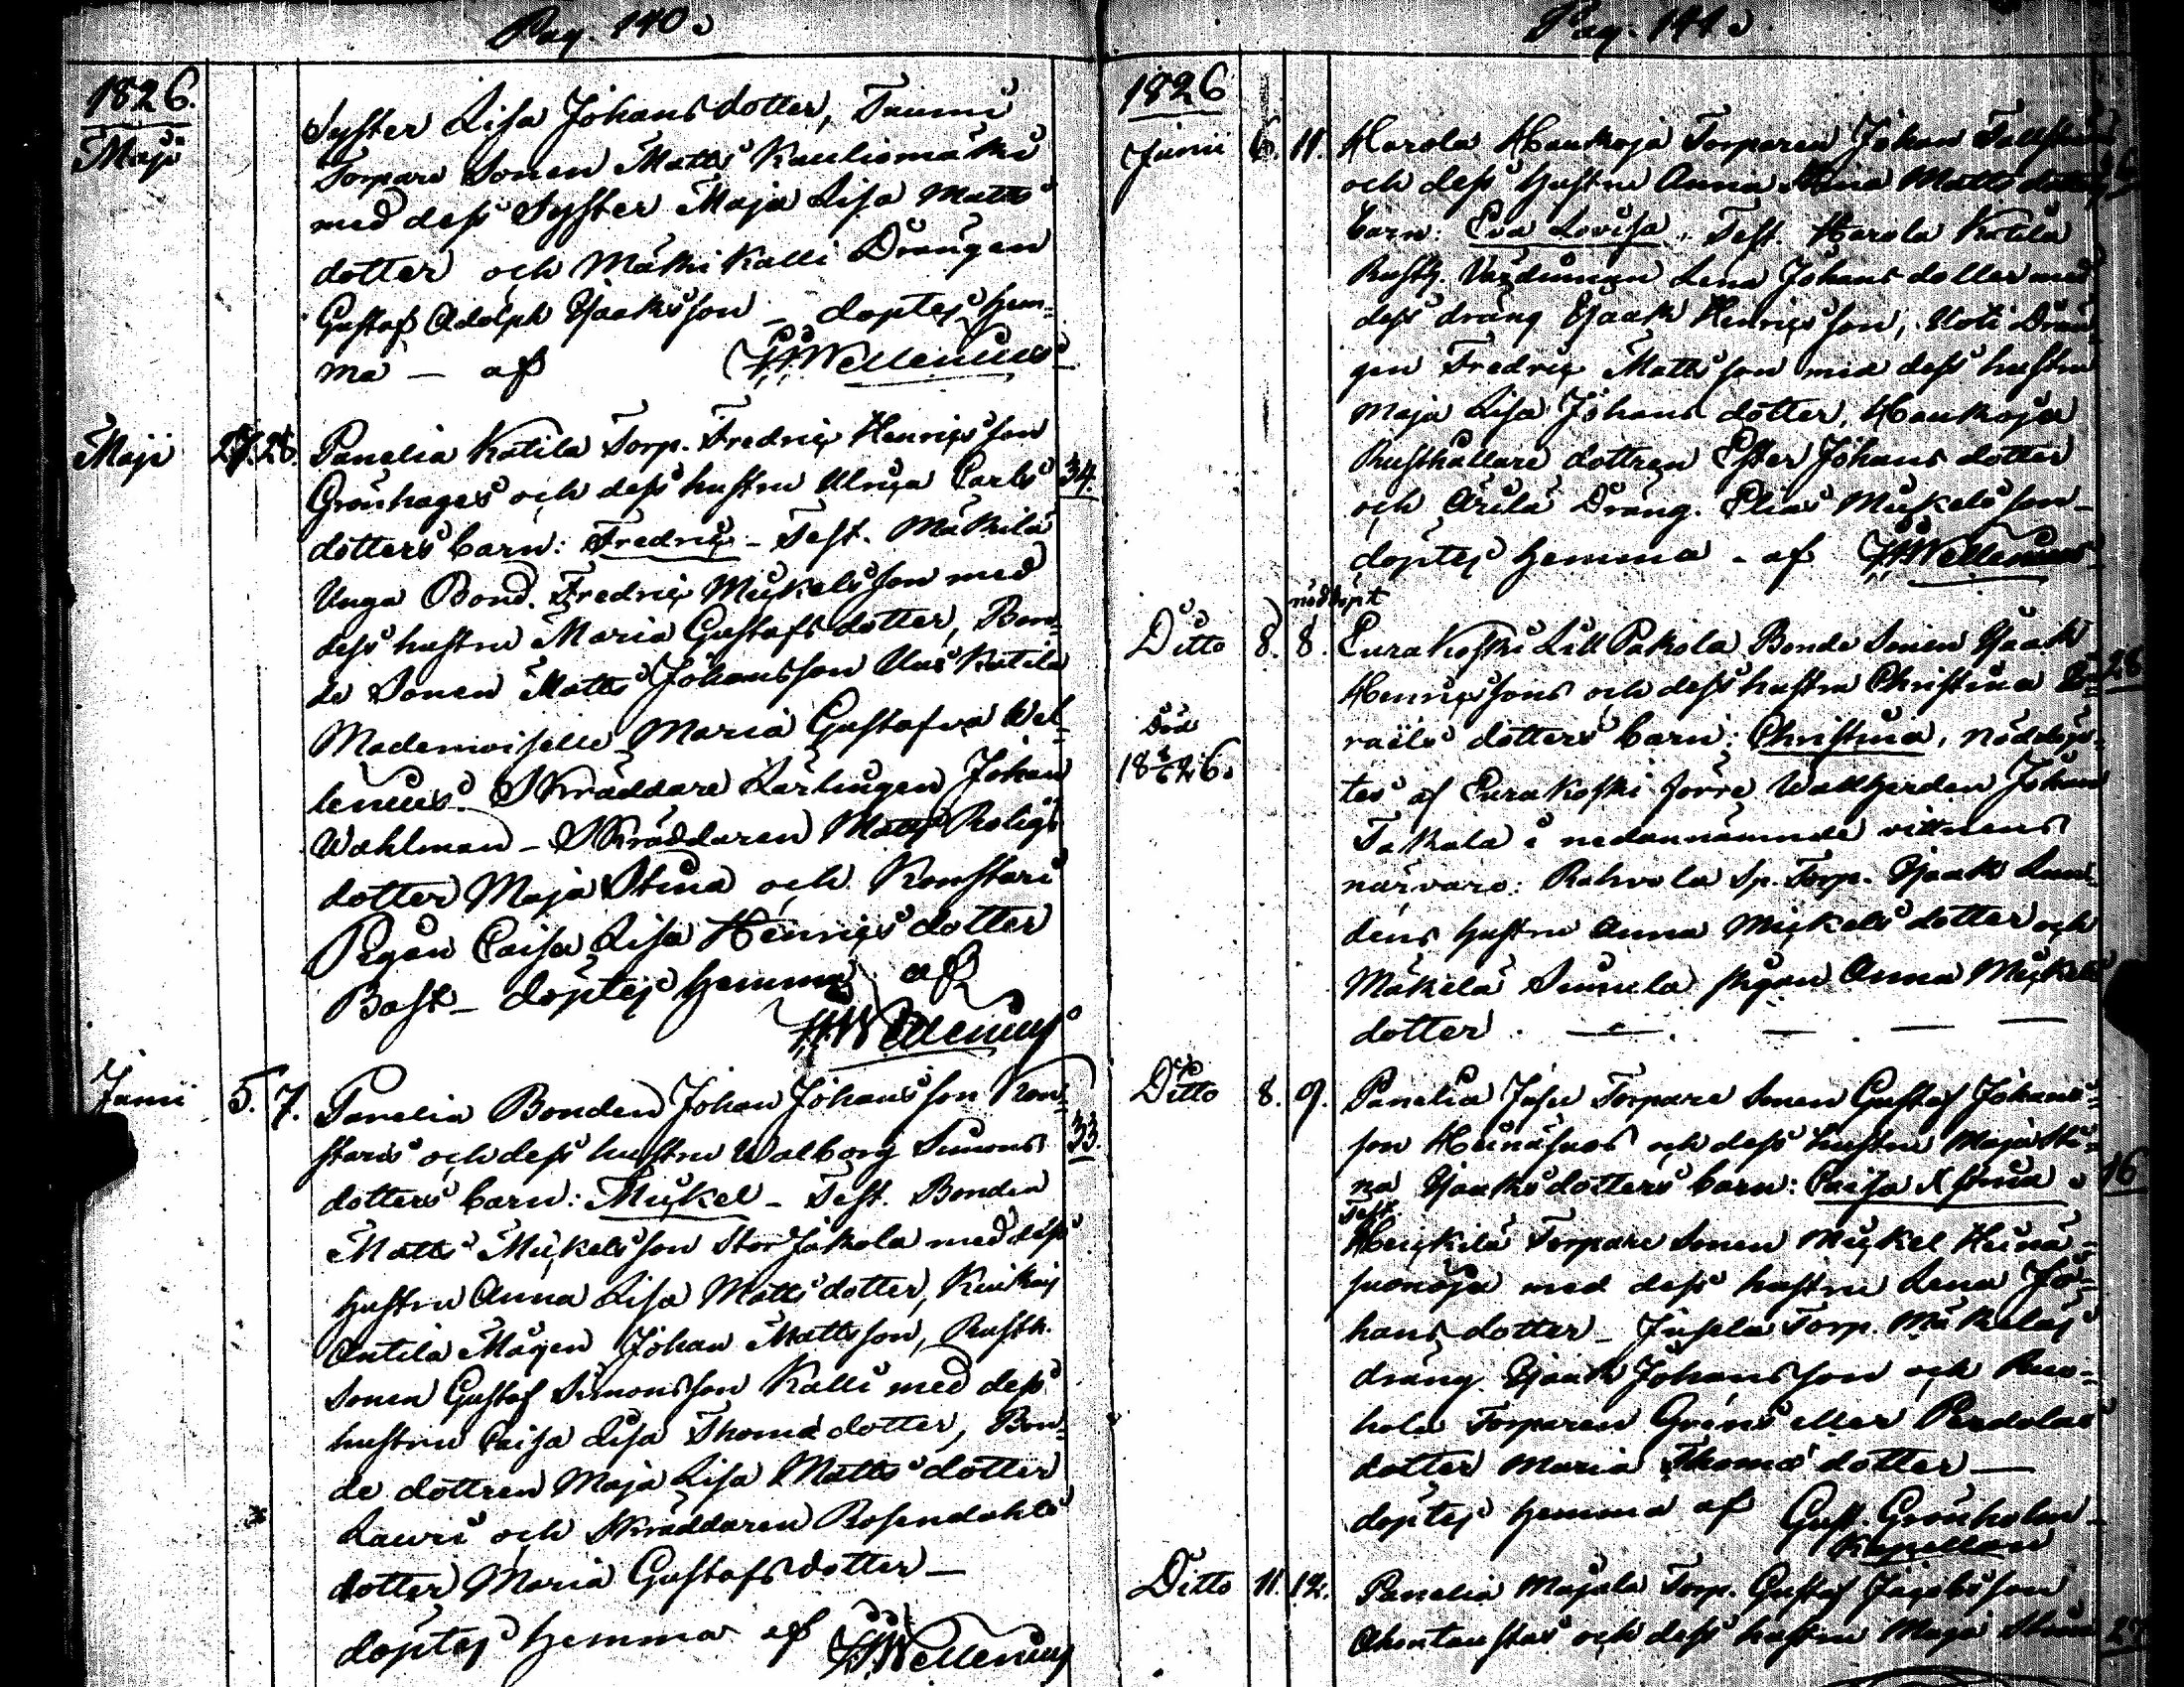 Pag. 140.
1826.
Maji
Syster Lisa Johansdotter, Tuumi
Torpare Sonen Matts Kauliomäki
med dess Syster Maja Lisa Matts
dotter och Mäki Kalli Drängen
Gustaf Adolph Isaksson _ döptes hem=
ma — af HWellenius
Maji 27. 28. Panelia Katila Torp. Fredric Henricsson
Grönhages och dess hustru Ulrica Carls 34.
dotters barn: Fredric - Test. Mäkilä
Unga Bond. Fredric Mickelsson med
dess hustru Maria Gustafsdotter, Bon=
de Sonen Matts Johansson Uus Katila
Mademoiselle Maria Gustafva Wel=
lenius. Skräddare Lärlingen Johan
Wahlman - Skräddaren Matts Roligs
dotter Maja Stina och Konstari
Pigan Caisa Lisa Henricsdotter
Bast - döptes hemma af
HWellenius
Junii 5. 7. Panelia Bonden Johan Johansson Kon=
staris och dess hustru Walborg Simons 33.
dotters barn: Mickel - Test. Bonden
Matts Mickelsson Stor Jakola med dess
hustru Anna Lisa Matts dotter,
Antila Mågen Johan Mattsson, Rusth.
Sonen Gustaf Simonsson Kalli med dess
hustru Caisa Lisa Thomædotter, Bon=
de dottren Maja Lisa Matts dotter
Lauri och Skräddaren Rosendahls
dotter Maria Gustafsdotter —
döptes hemma af HWellenius
Pag. 141.
1826
Junii 6. 11. Harola Haukoja Torparen Johan
och dess hustru Anna Stina Matts dotters
barn: Eva Lovisa. Test. Harola Katila
Rusth. Lena Johans dotter med
dess dräng Isaak Henricsson, Uoti Drän
gen Fredric Mattsson med dess hustru
Maja Lisa Johans dotter, Haukoja
Rusthållare dottren Ester Johans dotter
och Ärilä Dräng. Elias Mickelsson -
döptes hemma - af HWellenius
nöddöpt
Ditto 8. 8. Eurakoski Lill Pakola Bonde Sonen Isaak
Henricssons och dess hustru Christina Is= 26
raëls dotters barn: Christina, nöddöp=
Död
tes af Eurakoski förre Wallherden Johan
Takala i nedannämnde vittnens
närvaro: Rahvola Sp. Torp. Isaak Lin=
déns hustru Anna Mickels dotter och
Mäkelä Simula pigan Anna Mickels
dotter.
Ditto 8. 9. Panelia Jusu Torpare Sonen Gustaf Johans=
son Heinäsuos och dess hustru Maja Sti=
na Isaaksdotters barn: Caisa Stina 16
Test.
Heickilä Torpare Sonen Mickel Heinä=
suonoja med dess hustru Lena Jo=
hans dotter - Jusela Torp. Mäkeläs
dräng Isaak Johansson och Ruo=
hola Torparen Gröns eller Pendolas
dotter Maria Thomæ dotter —
döptes hemma af Gust. Grönholm
Kapellan
Ditto 11. 12. Panelia Majala Torp. Gustaf Jacobsson
och dess hustru Maja Stina